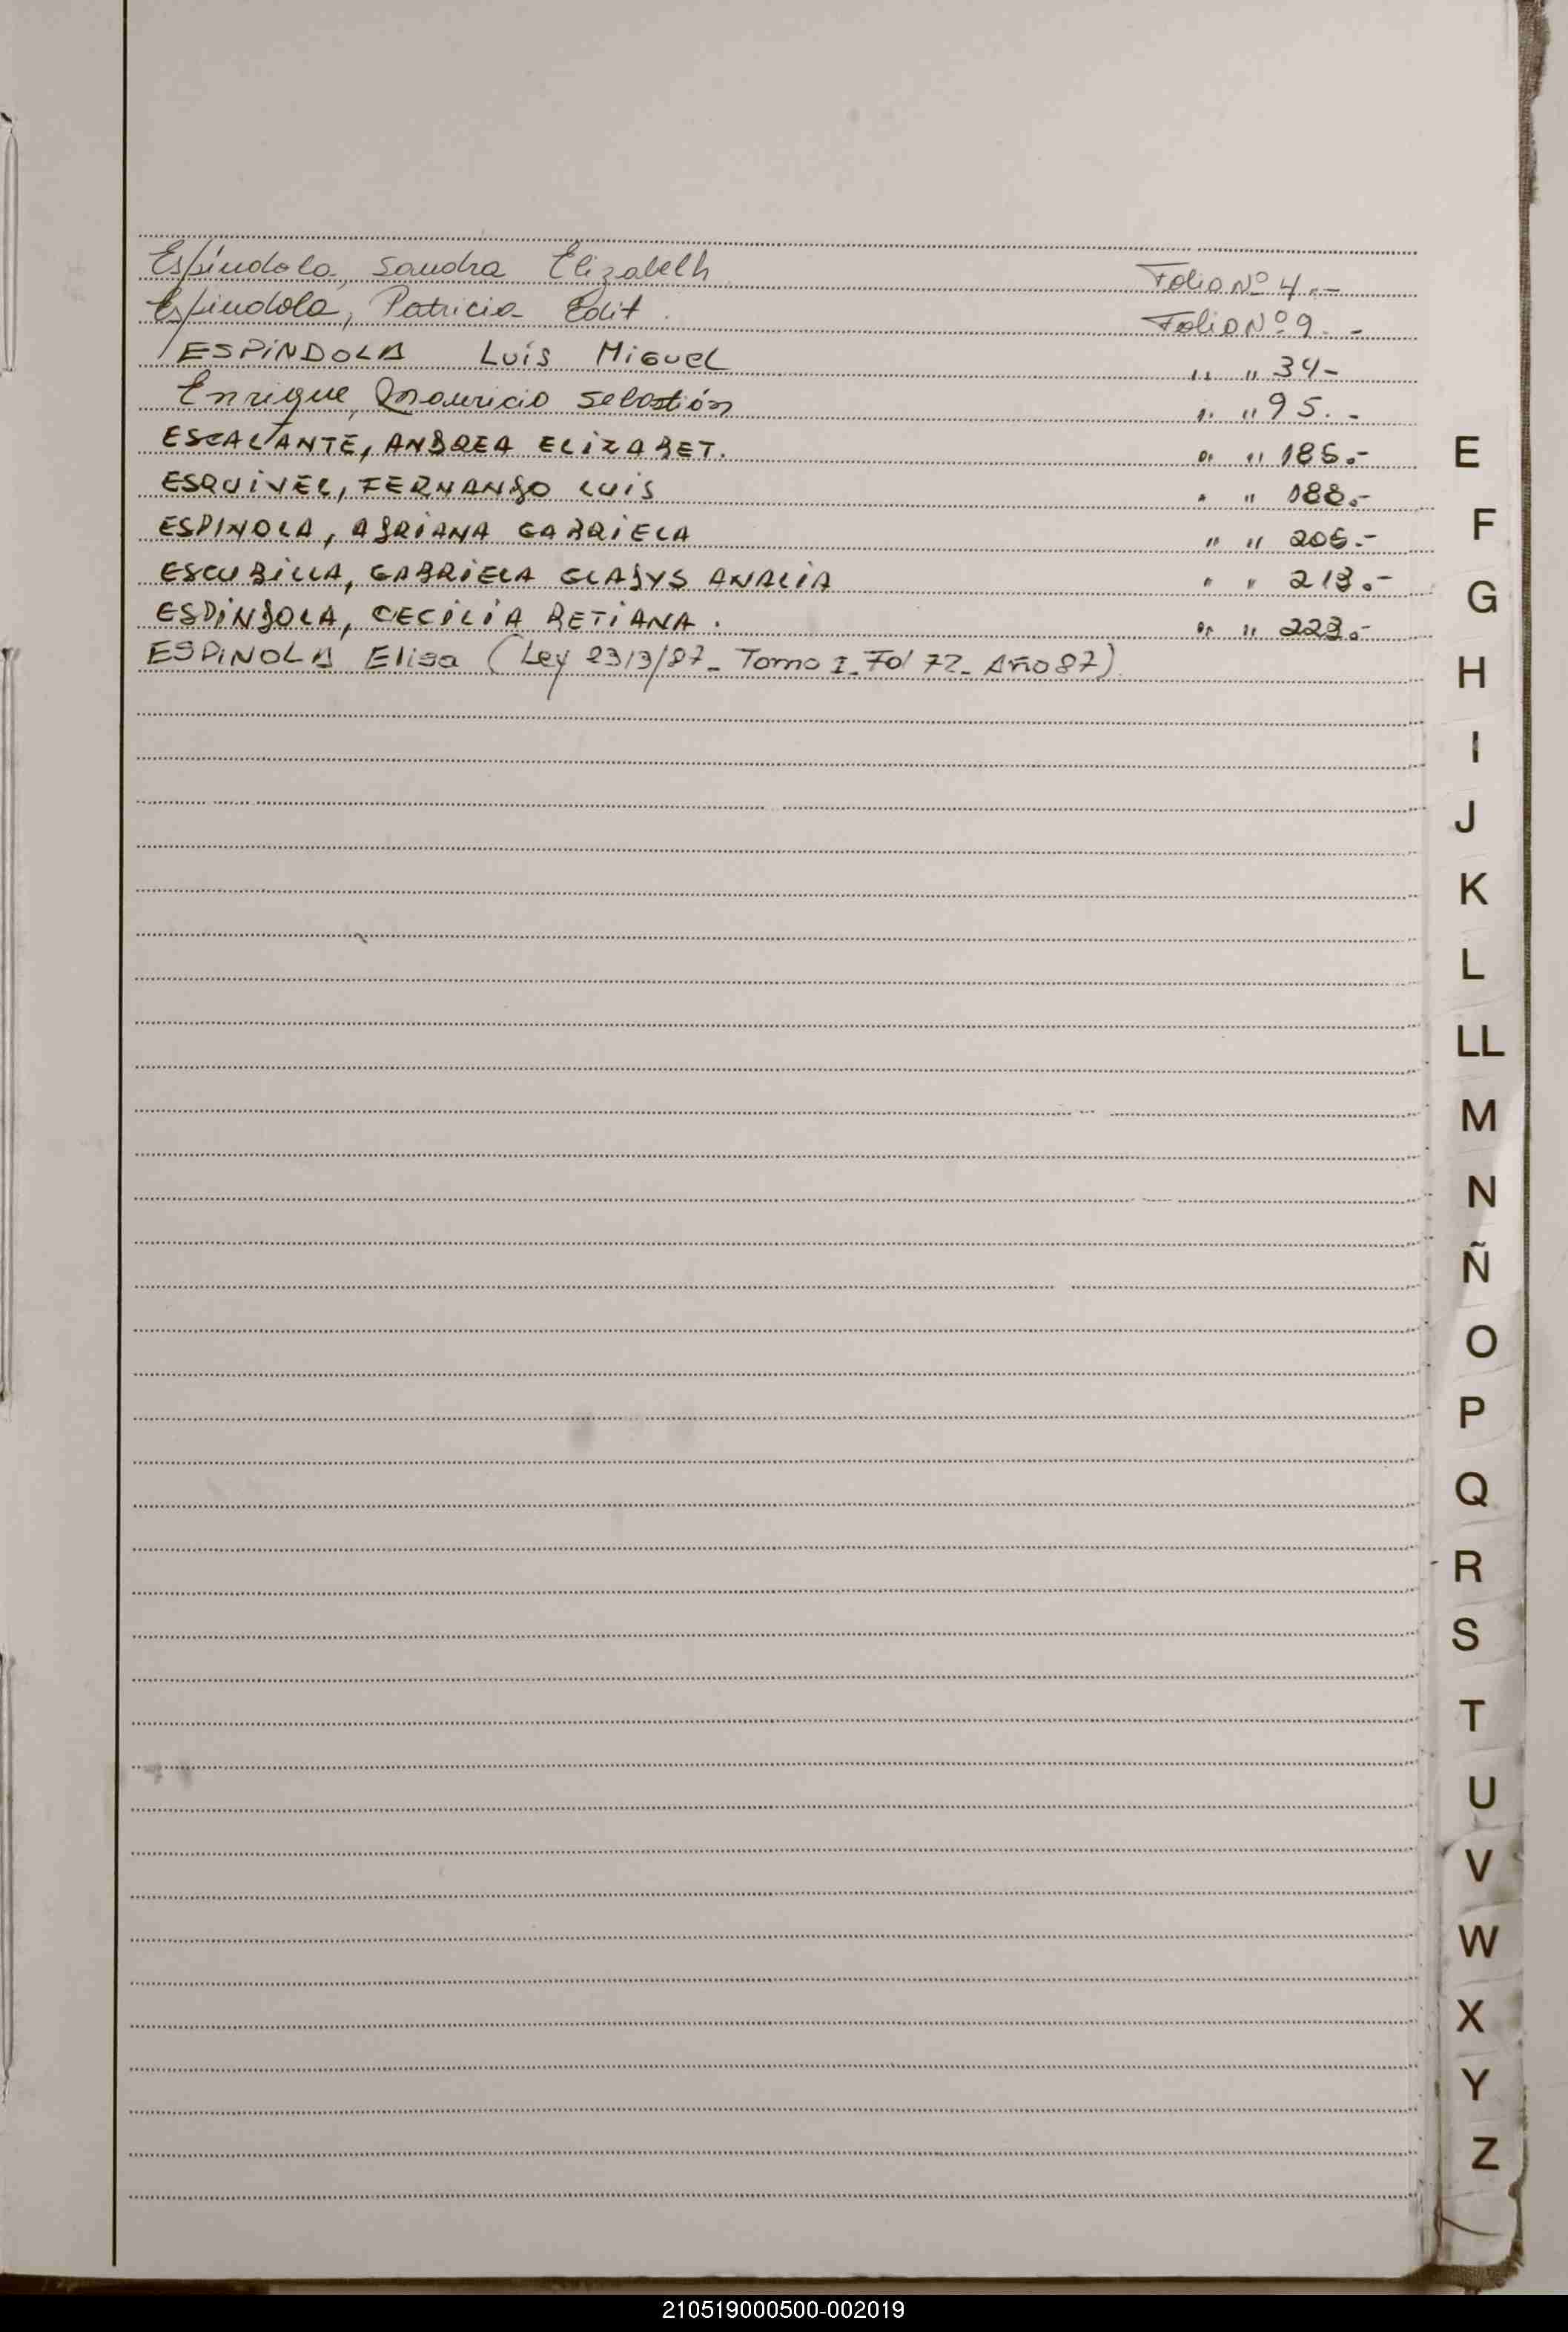 Espíndola, Sandra Elizabelh Folio Nº 4.-
Espindola, Patricia Edit. Folio Nº 9. -
ESPíNDOLA Luís Miguel " " 34-
Enrique, Mauricio Sebastión " " 95.-
ESCALANTE, ANDREA ELIZABET. " " 185.-
ESQUIVEL, FERNANDO LUIS " " 188.-
ESPINOLA, ADRIANA GABRIELA " " 205.-
ESCUBILLA, GABRIELA GLADYS ANALIA " " 213.-
ESPINDOLA, CECILIA BETIANA. " " 223.-
ESPINOLA Elisa (Ley 2313/87- Tomo I- Fol 72- Año 87)
E
F
G
H
I
J
K
L
LL
M
N
Ñ
O
P
Q
R
S
T
U
V
W
X
Y
Z
210519000500-002019